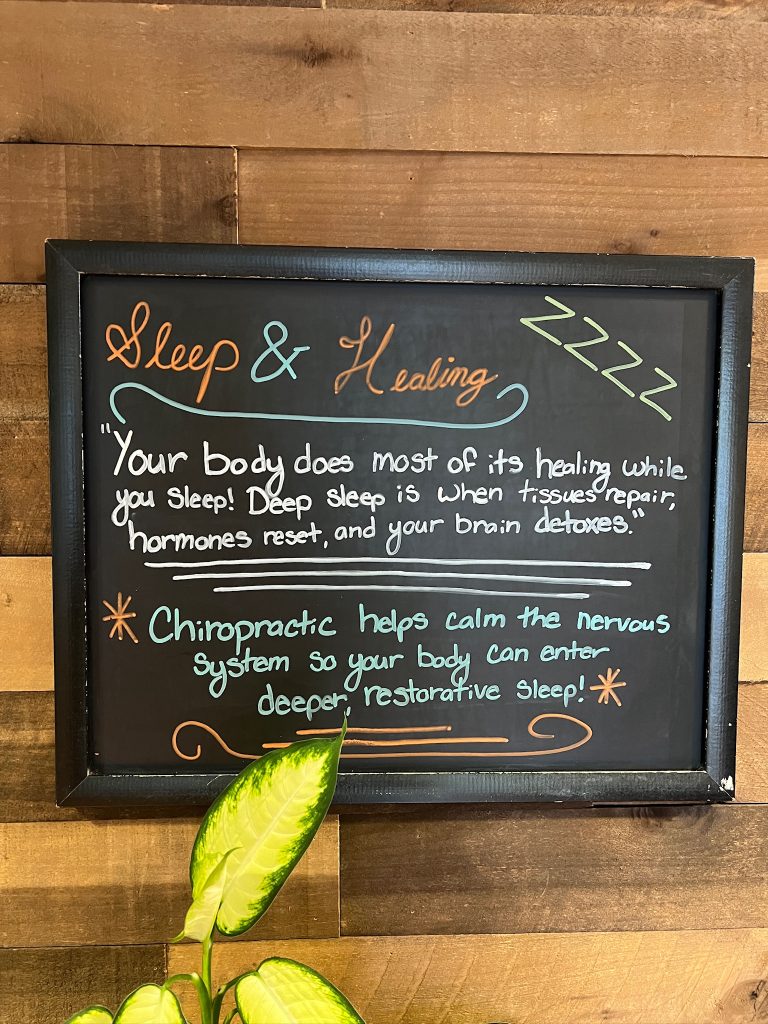 Sleep & Healing
ZZZZ
"Your body does most of its healing while
you sleep! Deep sleep is when tissues repair,
hormones reset, and your brain detoxes."
* Chiropractic helps calm the nervous
system so your body can enter
deeper, restorative sleep! *